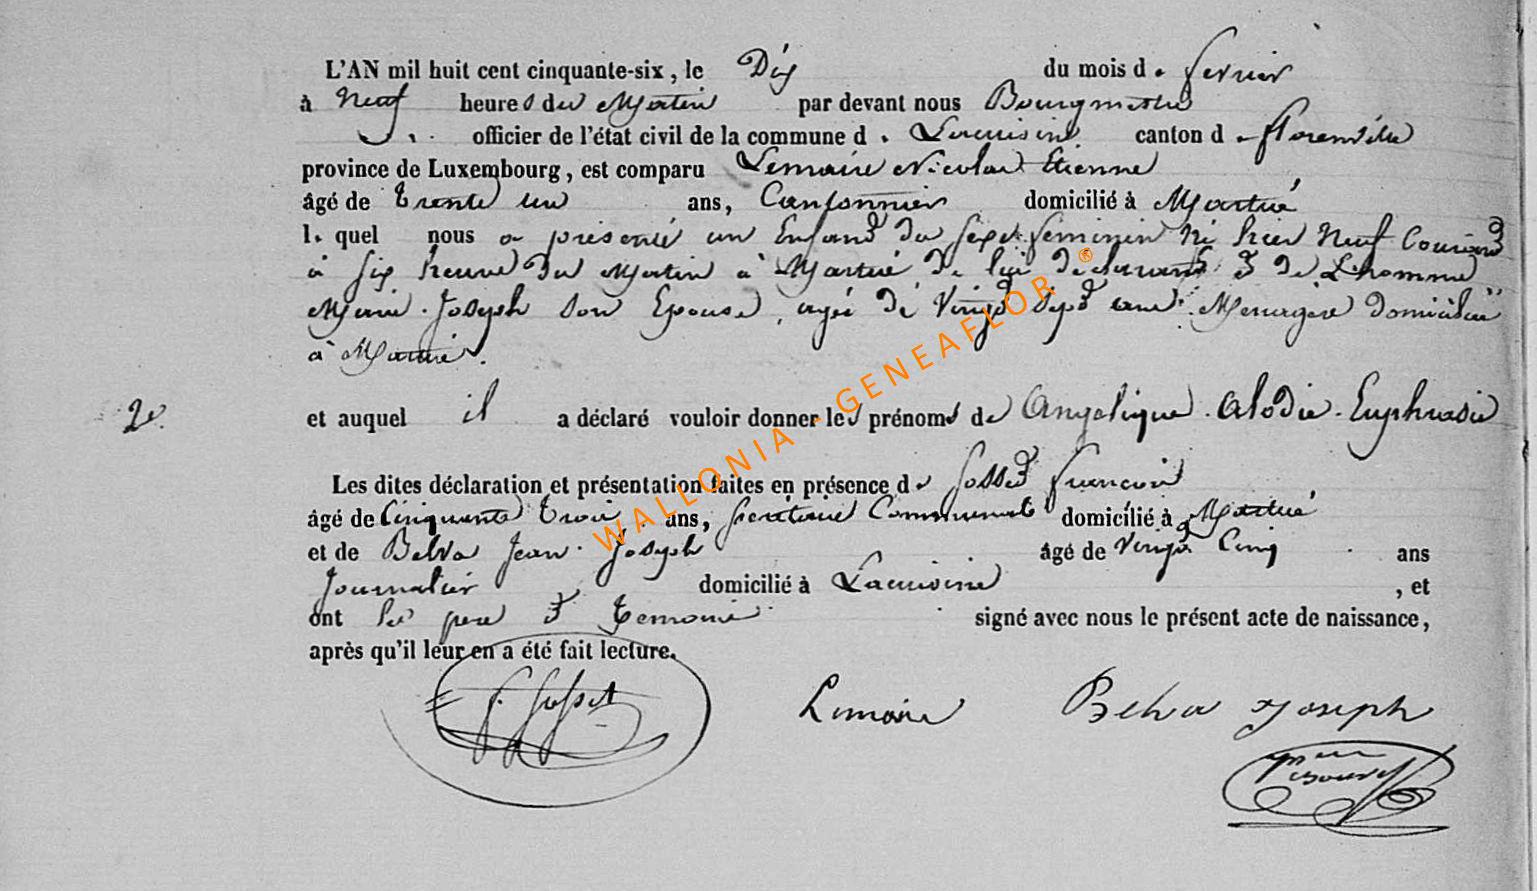 L'AN mil huit cent cinquante-six, le Dix du mois de fevrier
à Neuf heures du Matin par devant nous Bourgmestre
officier de l'état civil de la commune de Lacuisine canton de florenville
province de Luxembourg, est comparu Lemaire Nicolas Etienne
âgé de trente un ans, Cantonnier domicilié à Martué
lequel nous a présenté un Enfant du sexe feminin né hier Neuf Courant
à six heures du Matin à Martué de lui déclarant et de Lhomme
Marie Joseph son Epouse, agée de Vingt sept ans Menagère domiciliée
à Martué.
2e.
et auquel il a déclaré vouloir donner les prénoms de Angelique Alodie Euphrasie
Les dites déclaration et présentation faites en présence de Gosset francois
âgé de Cinquante trois ans, secrétaire Communal domicilié à Martué
et de Belva Jean Joseph âgé de Vingt Cinq ans
Journalier domicilié à Lacuisine, et
ont les pere et temoins signé avec nous le présent acte de naissance,
après qu'il leur en a été fait lecture.
f. Gosset Lemaire Belva Joseph
WALLONIA - GENEAFLOR ®